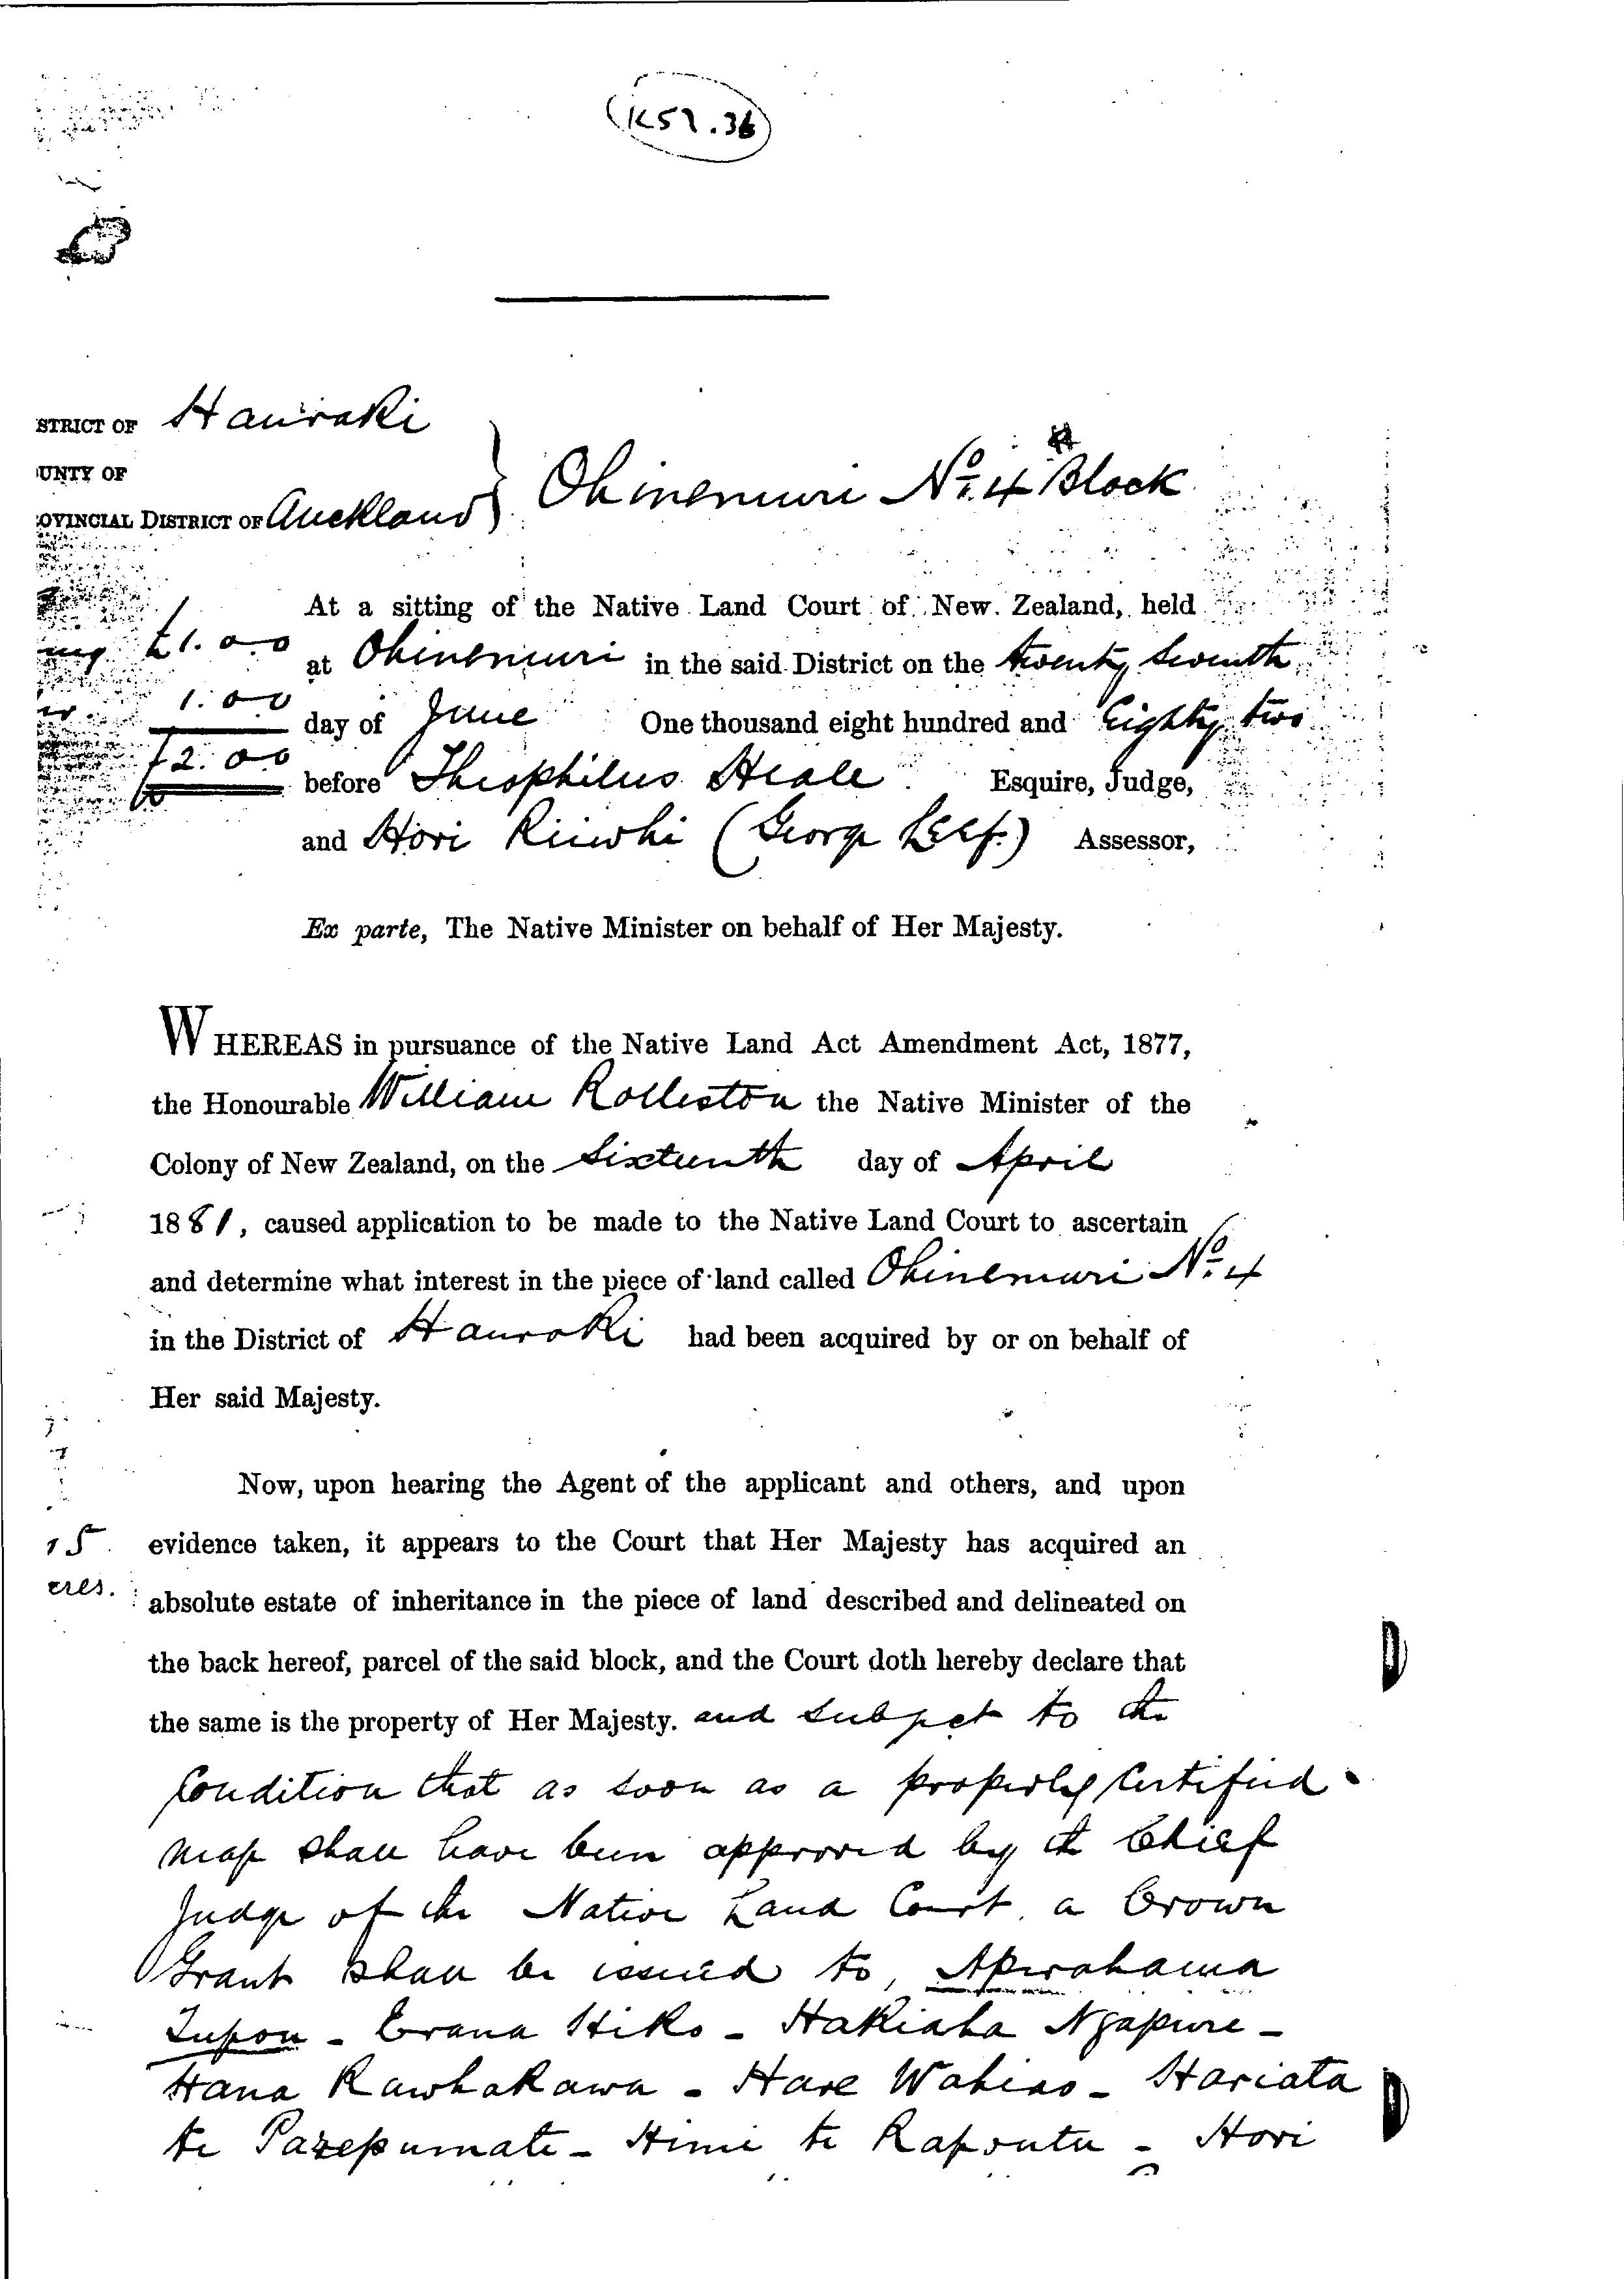 K57.36
STRICT OF Hauraki
UNTY OF
OVINCIAL DISTRICT OF Auckland
Ohinemuri No. 4 Block
At a sitting of the Native Land Court of New Zealand, held
£1.0.0
at Ohinemuri in the said District on the twenty seventh
1.0.0
day of June One thousand eight hundred and Eighty two
£2.0.0
before Theophilus Heale Esquire, Judge,
and Hori Riiwhi (George Leef.) Assessor,
Ex parte, The Native Minister on behalf of Her Majesty.
WHEREAS in pursuance of the Native Land Act Amendment Act, 1877,
the Honourable William Rolleston the Native Minister of the
Colony of New Zealand, on the Sixteenth day of April
1881, caused application to be made to the Native Land Court to ascertain
and determine what interest in the piece of land called Ohinemuri No. 4
in the District of Hauraki had been acquired by or on behalf of
Her said Majesty.
Now, upon hearing the Agent of the applicant and others, and upon
15 evidence taken, it appears to the Court that Her Majesty has acquired an
cres. absolute estate of inheritance in the piece of land described and delineated on
the back hereof, parcel of the said block, and the Court doth hereby declare that
the same is the property of Her Majesty. and subject to the
Condition that as soon as a properly Certified
map shall have been approved by the Chief
Judge of the Native Land Court, a Crown
Grant shall be issued to, Aperahama
Tupou - Erana Hiko - Hakiaha Ngapure -
Hana Rawhakawa - Hare Wahino - Hariata
te Parepumate - Himi te Rapoutu - Hori